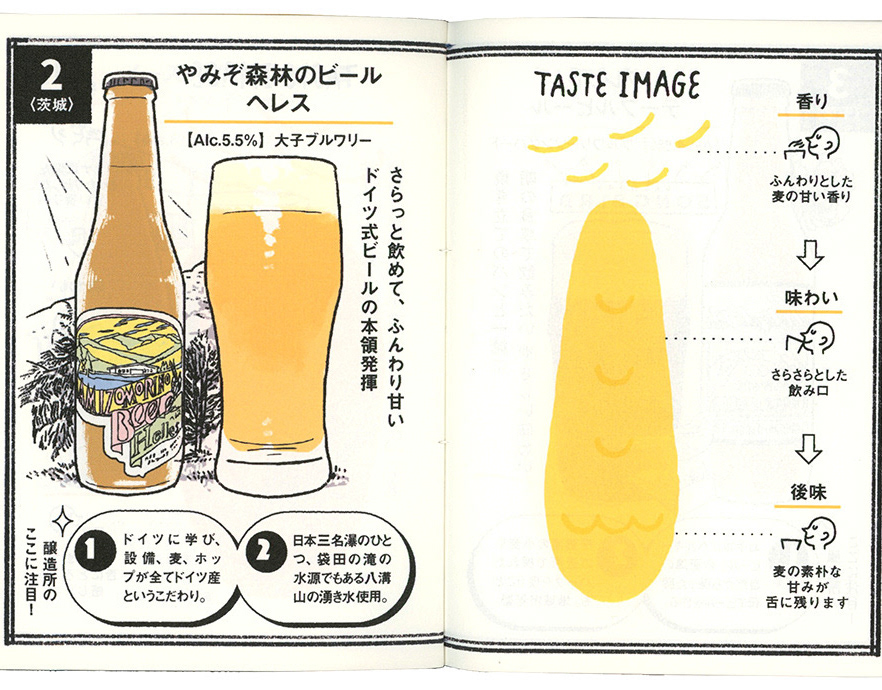 2
〈茨城〉
やみぞ森林のビール
ヘレス
【Alc.5.5%】大子ブルワリー
さらっと飲めて、ふんわり甘い
ドイツ式ビールの本領発揮
YAMIZOMORINO
Beer
Helles
醸造所の
ここに注目!
1
ドイツに学び、
設備、麦、ホッ
プが全てドイツ産
というこだわり。
2
日本三名瀑のひと
つ、袋田の滝の
水源でもある八溝
山の湧き水使用。
TASTE IMAGE
香り
ふんわりとした
麦の甘い香り
味わい
さらさらとした
飲み口
後味
麦の素朴な
甘みが
舌に残ります